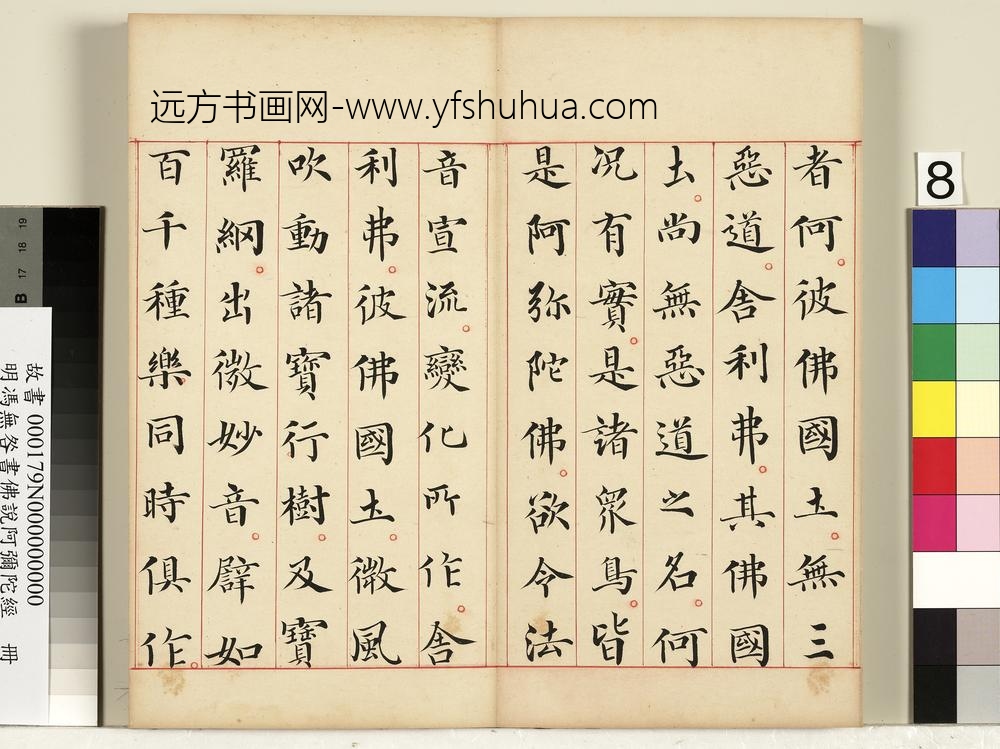 远方书画网-www.yfshuhua.com
者何彼佛國土無三
惡道舎利弗其佛國
土尚無惡道之名何
况有實是諸衆鳥皆
是阿弥陀佛欲令法
音宣流變化所作舎
利弗彼佛國土微風
吹動諸寶行樹及寶
羅網出微妙音譬如
百千種樂同時俱作
8
故書 000179N000000000
明馮無咎書佛說阿彌陀經 冊
B 17 18 19